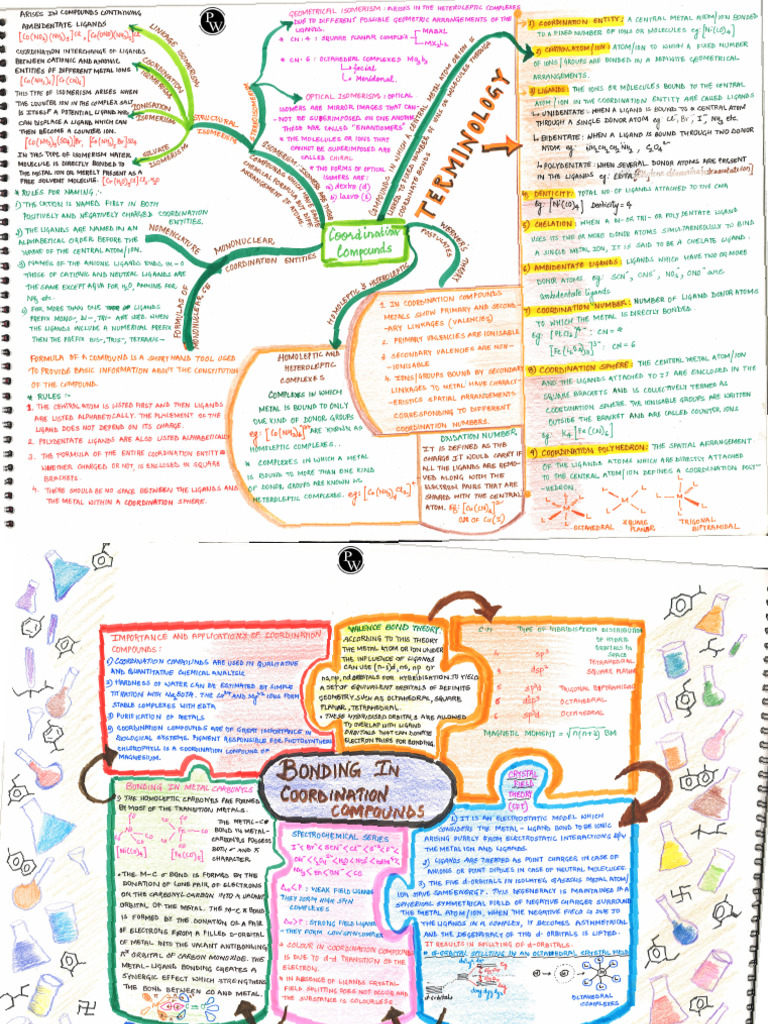 ARISES IN COMPOUNDS CONTAINING
AMBIDENTATE LIGANDS
COORDINATION INTERCHANGE OF LIGANDS
BETWEEN CATIONIC AND ANIONIC
ENTITIES OF DIFFERENT METAL IONS
[Co(NH3)6][Cr(CN)6]
THIS TYPE OF ISOMERISM ARISES WHEN
THE COUNTER ION IN THE COMPLEX SALT
IS ITSELF A POTENTIAL LIGAND AND
CAN DISPLACE A LIGAND WHICH CAN
THEN BECOME A COUNTER ION.
[Co(NH3)5SO4]Br, [Co(NH3)5Br]SO4
IN THIS TYPE OF ISOMERISM WATER
MOLECULE IS DIRECTLY BONDED TO
THE METAL ION OR MERELY PRESENT AS A
FREE SOLVENT MOLECULE.
LINKAGE ISOMERISM
COORDINATION ISOMERISM
IONISATION ISOMERISM
SOLVATE ISOMERISM
STRUCTURAL ISOMERISM
STEREOISOMERISM
PW
GEOMETRICAL ISOMERISM : ARISES IN THE HETEROLEPTIC COMPLEXES
DUE TO DIFFERENT POSSIBLE GEOMETRIC ARRANGEMENTS OF THE
LIGANDS.
* CN: 4 : SQUARE PLANAR COMPLEX
* CN: 6 : OCTAHEDRAL COMPLEXES Ma3b3
facial
Meridional
* OPTICAL ISOMERISMS : OPTICAL
ISOMERS ARE MIRROR IMAGES THAT CAN-
NOT BE SUPERIMPOSED ON ONE ANOTHER
THESE ARE CALLED "ENANTIOMERS"
* THE MOLECULES OR IONS THAT
CANNOT BE SUPERIMPOSED ARE
CALLED CHIRAL.
* THE FORMS OF OPTICAL
ISOMERS ARE :
a) dextro (d)
b) laevo (l)
TERMINOLOGY
1) COORDINATION ENTITY: A CENTRAL METAL ATOM/ION BONDED
TO A FIXED NUMBER OF IONS OR MOLECULES eg: [Ni(CO)4]
2) CENTRAL ATOM/ION: ATOM/ION TO WHICH A FIXED NUMBER
OF IONS/GROUPS ARE BONDED IN A DEFINITE GEOMETRICAL
ARRANGEMENTS.
3) LIGANDS: THE IONS OR MOLECULES BOUND TO THE CENTRAL
ATOM/ION IN THE COORDINATION ENTITY ARE CALLED LIGANDS
UNIDENTATE: WHEN A LIGAND IS BOUND TO A CENTRAL ATOM
THROUGH A SINGLE DONOR ATOM
BIDENTATE: WHEN A LIGAND IS BOUND THROUGH TWO DONOR
POLYDENTATE: WHEN SEVERAL DONOR ATOMS ARE PRESENT
IN THE LIGANDS
4) DENTICITY: TOTAL NO. OF LIGANDS ATTACHED TO THE CMA
eg: [Ni(CO)4] Denticity = 4
5) CHELATION: WHEN A DI- OR TRI- OR POLYDENTATE LIGAND
USES ITS TWO OR MORE DONOR ATOMS SIMULTANEOUSLY TO BIND
A SINGLE METAL ION, IT IS SAID TO BE A CHELATE LIGAND.
6) AMBIDENTATE LIGANDS: LIGANDS WHICH HAVE TWO OR MORE
DONOR ATOMS
ambidentate ligands
7) COORDINATION NUMBER: NUMBER OF LIGAND DONOR ATOMS
TO WHICH THE METAL IS DIRECTLY BONDED.
CN = 4
CN = 6
8) COORDINATION SPHERE: THE CENTRAL METAL ATOM/ION
AND THE LIGANDS ATTACHED TO IT ARE ENCLOSED IN THE
SQUARE BRACKETS AND IS COLLECTIVELY TERMED AS
COORDINATION SPHERE. THE IONISABLE GROUPS ARE WRITTEN
OUTSIDE THE BRACKET AND ARE CALLED COUNTER IONS
eg: K4[Fe(CN)6]
9) COORDINATION POLYHEDRON: THE SPATIAL ARRANGEMENT
OF THE LIGANDS ATOMS WHICH ARE DIRECTLY ATTACHED
TO THE CENTRAL ATOM/ION DEFINES A COORDINATION POLY-
HEDRON.
OCTAHEDRAL
SQUARE PLANAR
TRIGONAL BIPYRAMIDAL
Coordination
Compounds
WERNER'S POSTULATES
HOMOLEPTIC & HETEROLEPTIC
NOMENCLATURE
MONONUCLEAR COORDINATION ENTITIES
* RULES FOR NAMING :-
1) THE CATION IS NAMED FIRST IN BOTH
POSITIVELY AND NEGATIVELY CHARGED COORDINATION
ENTITIES.
2) THE LIGANDS ARE NAMED IN AN
ALPHABETICAL ORDER BEFORE THE
NAME OF THE CENTRAL ATOM/ION.
3) NAMES OF THE ANIONIC LIGANDS ENDS IN -O
THOSE OF CATIONIC AND NEUTRAL LIGANDS ARE
THE SAME EXCEPT AQUA FOR H2O, AMMINE FOR
NH3 etc.
4) FOR MORE THAN ONE LIGANDS
PREFIX MONO-, DI-, TRI- ARE USED. WHEN
THE LIGANDS INCLUDE A NUMERICAL PREFIX
THEN THE PREFIX BIS-, TRIS-, TETRAKIS-
FORMULA OF A COMPOUND IS A SHORT HAND TOOL USED
TO PROVIDE BASIC INFORMATION ABOUT THE CONSTITUTION
OF THE COMPOUND.
* RULES :-
1. THE CENTRAL ATOM IS LISTED FIRST AND THEN LIGANDS
ARE LISTED ALPHABETICALLY. THE PLACEMENT OF THE
LIGAND DOES NOT DEPEND ON ITS CHARGE.
2. POLYDENTATE LIGANDS ARE ALSO LISTED ALPHABETICALLY
3. THE FORMULA OF THE ENTIRE COORDINATION ENTITY
WHETHER CHARGED OR NOT, IS ENCLOSED IN SQUARE
BRACKETS.
4. THERE SHOULD BE NO SPACE BETWEEN THE LIGANDS AND
THE METAL WITHIN A COORDINATION SPHERE.
HOMOLEPTIC AND
HETEROLEPTIC
COMPLEXES
COMPLEXES IN WHICH
METAL IS BOUND TO ONLY
ONE KIND OF DONOR GROUPS
eg: [Co(NH3)6]3+ ARE KNOWN AS
HOMOLEPTIC COMPLEXES..
* COMPLEXES IN WHICH A METAL
IS BOUND TO MORE THAN ONE KIND
OF DONOR GROUPS ARE KNOWN AS
HETEROLEPTIC COMPLEXES.
1. IN COORDINATION COMPOUNDS
METALS SHOW PRIMARY AND SECOND-
ARY LINKAGES (VALENCIES)
2. PRIMARY VALENCIES ARE IONISABLE
3. SECONDARY VALENCIES ARE NON-
-IONISABLE
4. IONS/GROUPS BOUND BY SECONDARY
LINKAGES TO METAL HAVE CHARACT-
ERISTICS SPATIAL ARRANGEMENTS
CORRESPONDING TO DIFFERENT
COORDINATION NUMBERS.
OXIDATION NUMBER
IT IS DEFINED AS THE
CHARGE IT WOULD CARRY IF
ALL THE LIGANDS ARE REMOV-
ED ALONG WITH THE
ELECTRON PAIRS THAT ARE
SHARED WITH THE CENTRAL
ATOM.
PW
IMPORTANCE AND APPLICATIONS OF COORDINATION
COMPOUNDS :
1) COORDINATION COMPOUNDS ARE USED IN QUALITATIVE
AND QUANTITATIVE CHEMICAL ANALYSIS
2) HARDNESS OF WATER CAN BE ESTIMATED BY SIMPLE
TITRATION WITH Na2EDTA. THE Ca2+ AND Mg2+ IONS FORM
STABLE COMPLEXES WITH EDTA
3) PURIFICATION OF METALS
4) COORDINATION COMPOUNDS ARE OF GREAT IMPORTANCE IN
BIOLOGICAL SYSTEMS. PIGMENT RESPONSIBLE FOR PHOTOSYNTHESIS
CHLOROPHYLL IS A COORDINATION COMPOUND OF
MAGNESIUM.
VALENCE BOND THEORY:
ACCORDING TO THIS THEORY
THE METAL ATOM OR ION UNDER
THE INFLUENCE OF LIGANDS
CAN USE (n-1)d, ns, np OR
ns, np, nd ORBITALS FOR HYBRIDISATION TO YIELD
A SET OF EQUIVALENT ORBITALS OF DEFINITE
GEOMETRY, SUCH AS OCTAHEDRAL, SQUARE
PLANAR, TETRAHEDRAL.
• THESE HYBRIDISED ORBITALS ARE ALLOWED
TO OVERLAP WITH LIGAND
ORBITALS THAT CAN DONATE
ELECTRON PAIRS FOR BONDING.
TYPE OF HYBRIDISATION
DISTRIBUTION OF HYBRID ORBITALS IN SPACE
4 sp3 TETRAHEDRAL
dsp2 SQUARE PLANAR
5 sp3d TRIGONAL BIPYRAMIDAL
6 sp3d2 OCTAHEDRAL
6 d2sp3 OCTAHEDRAL
MAGNETIC MOMENT = √n(n+2) BM
BONDING IN
COORDINATION
COMPOUNDS
BONDING IN METAL CARBONYLS
* THE HOMOLEPTIC CARBONYLS ARE FORMED
BY MOST OF THE TRANSITION METALS.
[Ni(CO)4] [Fe(CO)5]
THE METAL-CO
BOND IN METAL-
CARBONYLS POSSESS
BOTH σ AND π
CHARACTER.
• THE M-C σ BOND IS FORMED BY THE
DONATION OF LONE PAIR OF ELECTRONS
ON THE CARBONYL CARBON INTO A VACANT
ORBITAL OF THE METAL. THE M-C π BOND
IS FORMED BY THE DONATION OF A PAIR
OF ELECTRONS FROM A FILLED d-ORBITAL
OF METAL INTO THE VACANT ANTIBONDING
π* ORBITAL OF CARBON MONOXIDE. THE
METAL-LIGAND BONDING CREATES A
SYNERGIC EFFECT WHICH STRENGTHENS
THE BOND BETWEEN CO AND METAL.
SPECTROCHEMICAL SERIES
Δo < P : WEAK FIELD LIGANDS
THEY FORM HIGH SPIN
COMPLEXES
Δo > P : STRONG FIELD LIGANDS
THEY FORM LOW SPIN COMPLEXES
* COLOUR IN COORDINATION COMPOUNDS
IS DUE TO d-d TRANSITION OF THE
ELECTRON.
* IN ABSENCE OF LIGANDS CRYSTAL
FIELD SPLITTING DOES NOT OCCUR AND
THE SUBSTANCE IS COLOURLESS.
CRYSTAL
FIELD
THEORY
(CFT)
1) IT IS AN ELECTROSTATIC MODEL WHICH
CONSIDERS THE METAL-LIGAND BOND TO BE IONIC
ARISING PURELY FROM ELECTROSTATIC INTERACTIONS b/w
THE METAL ION AND LIGANDS.
2) LIGANDS ARE TREATED AS POINT CHARGES IN CASE OF
ANIONS OR POINT DIPOLES IN CASE OF NEUTRAL MOLECULES
3) THE FIVE d-ORBITALS IN ISOLATED GASEOUS METAL ATOM/
ION HAVE SAME ENERGY. THIS DEGENERACY IS MAINTAINED IF A
SPHERICAL SYMMETRICAL FIELD OF NEGATIVE CHARGES SURROUNDS
THE METAL ATOM/ION. WHEN THE NEGATIVE FIELD IS DUE TO
THE LIGANDS IN A COMPLEX, IT BECOMES ASYMMETRICAL
AND THE DEGENERACY OF THE d-ORBITALS IS LIFTED.
IT RESULTS IN SPLITTING OF d-ORBITALS.
* d-ORBITAL SPLITTING IN AN OCTAHEDRAL CRYSTAL FIELD
d-orbitals
OCTAHEDRAL
COMPLEXES